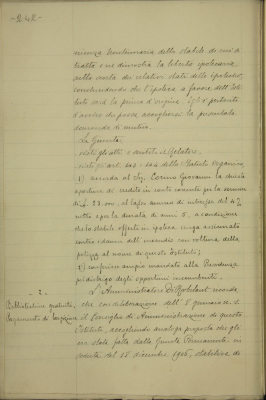 - 242 -
menza trentennaria dello stabile, di cui si
tratta e ne dimostra la libertà ipotecaria
colla scorta dei relativi stati delle ipoteche,
concludendo che l'ipoteca a favore dell'Isti-
tuto sarà la prima d'origine. Egli è pertanto
d'avviso che possa accogliersi la presentata
domanda di mutuo.
La Giunta,
visti gli atti e sentito il Relatore,
visti gli art. dello Statuto Organico,
1) accorda al Sig. Giovanni la chiesta
apertura di credito in conto corrente per la somma
di £. 28 mila, al tasso annuo di interesse del 4%
netto e per la durata di anni 5, a condizione
che lo stabile offerto in ipoteca venga assicurato
contro i danni dell'incendio con voltura della
polizza al nome di questo Istituto;
2) conferisce ampio mandato alla Presidenza
pel disbrigo degli opportuni incombenti.
- 2 -
L'Amministratore Di Robilant ricorda
che con deliberazione dell' 8 gennaio
il Consiglio di Amministrazione di questo
Istituto, accogliendo analoga proposta che gli
era stata fatta dalla Giunta Permanente in
seduta del 15 dicembre 1905, stabiliva di